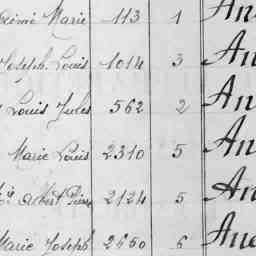 Rémi Marie 113 1 An
Joseph Louis 1014 3 An
Louis Jules 562 2 An
Marie Louis 2310 5 An
Albert Pierre 2124 5 An
Marie Joseph 2650 6 An